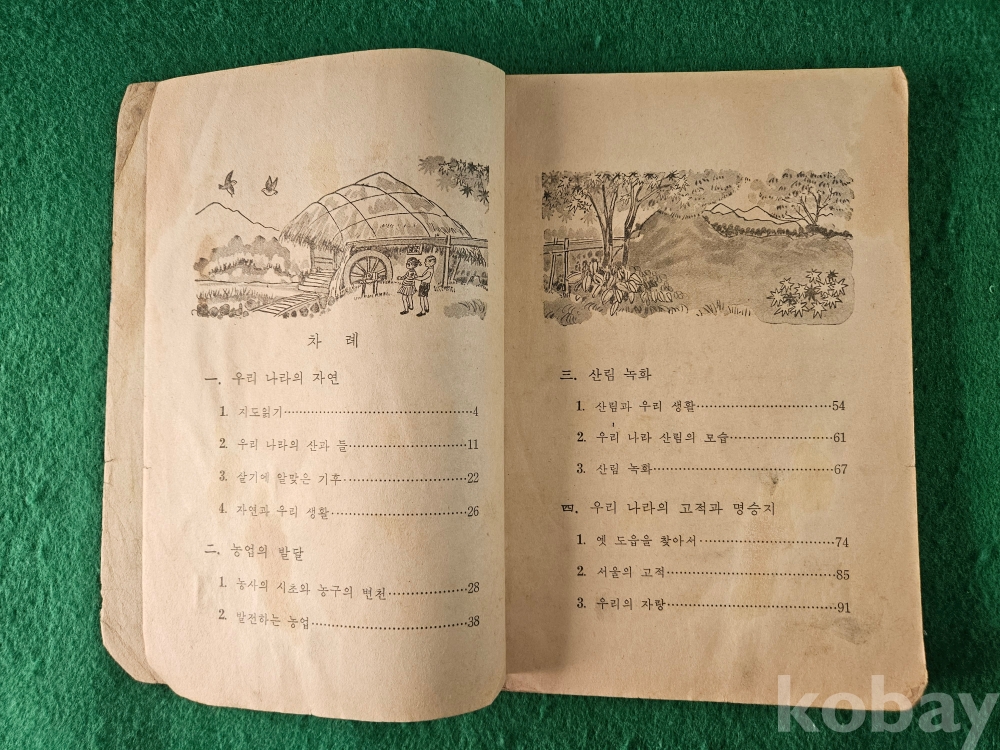 차 례
一. 우리 나라의 자연
1. 지도읽기 4
2. 우리 나라의 산과 들 11
3. 살기에 알맞은 기후 22
4. 자연과 우리 생활 26
二. 농업의 발달
1. 농사의 시초와 농구의 변천 28
2. 발전하는 농업 38
三. 산림 녹화
1. 산림과 우리 생활 54
2. 우리 나라 산림의 모습 61
3. 산림 녹화 67
四. 우리 나라의 고적과 명승지
1. 옛 도읍을 찾아서 74
2. 서울의 고적 85
3. 우리의 자랑 91
kobay